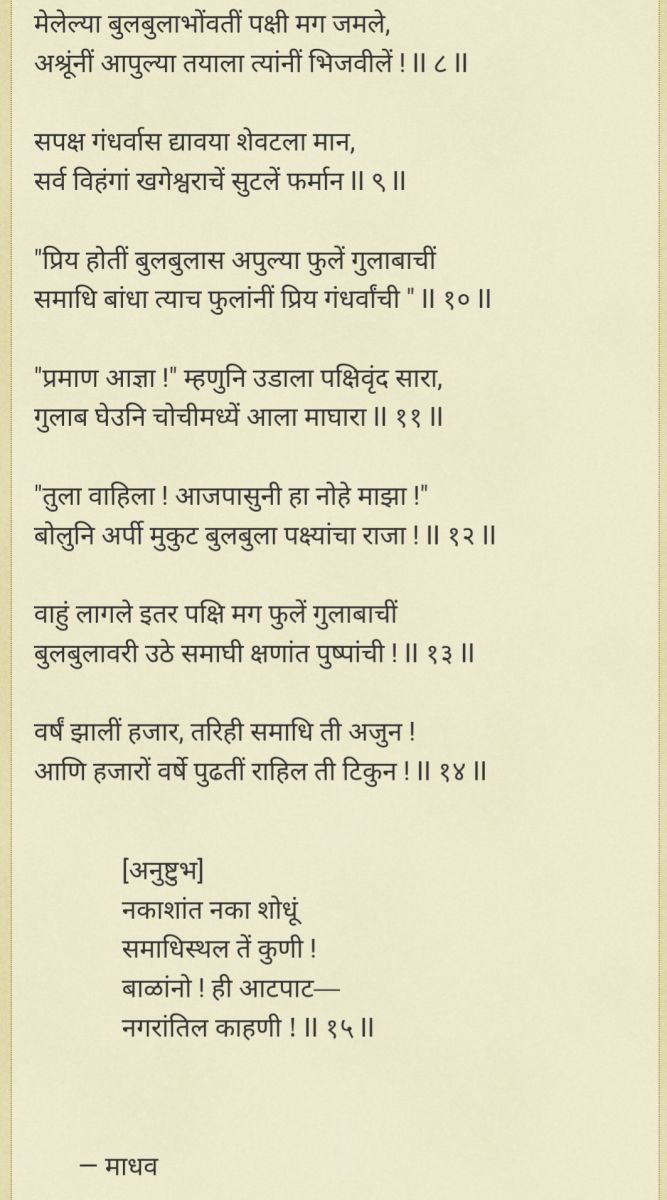 मेलेल्या बुलबुलाभोंवतीं पक्षी मग जमले,
अश्रूंनीं आपुल्या तयाला त्यांनीं भिजवीलें ! ॥ ८ ॥
सपक्ष गंधर्वास द्यावया शेवटला मान,
सर्व विहंगां खगेश्वराचें सुटलें फर्मान ॥ ९ ॥
"प्रिय होतीं बुलबुलास अपुल्या फुलें गुलाबाचीं
समाधि बांधा त्याच फुलांनीं प्रिय गंधर्वांची " ॥ १० ॥
"प्रमाण आज्ञा !" म्हणुनि उडाला पक्षिवृंद सारा,
गुलाब घेउनि चोचीमध्यें आला माघारा ॥ ११ ॥
"तुला वाहिला ! आजपासुनी हा नोहे माझा !"
बोलुनि अर्पी मुकुट बुलबुला पक्ष्यांचा राजा ! ॥ १२ ॥
वाहुं लागले इतर पक्षि मग फुलें गुलाबाचीं
बुलबुलावरी उठे समाघी क्षणांत पुष्पांची ! ॥ १३ ॥
वर्षं झालीं हजार, तरिही समाधि ती अजुन !
आणि हजारों वर्षे पुढतीं राहिल ती टिकुन ! ॥ १४ ॥
[अनुष्टुभ]
नकाशांत नका शोधूं
समाधिस्थल तें कुणी !
बाळांनो ! ही आटपाट—
नगरांतिल काहणी ! ॥ १५ ॥
– माधव